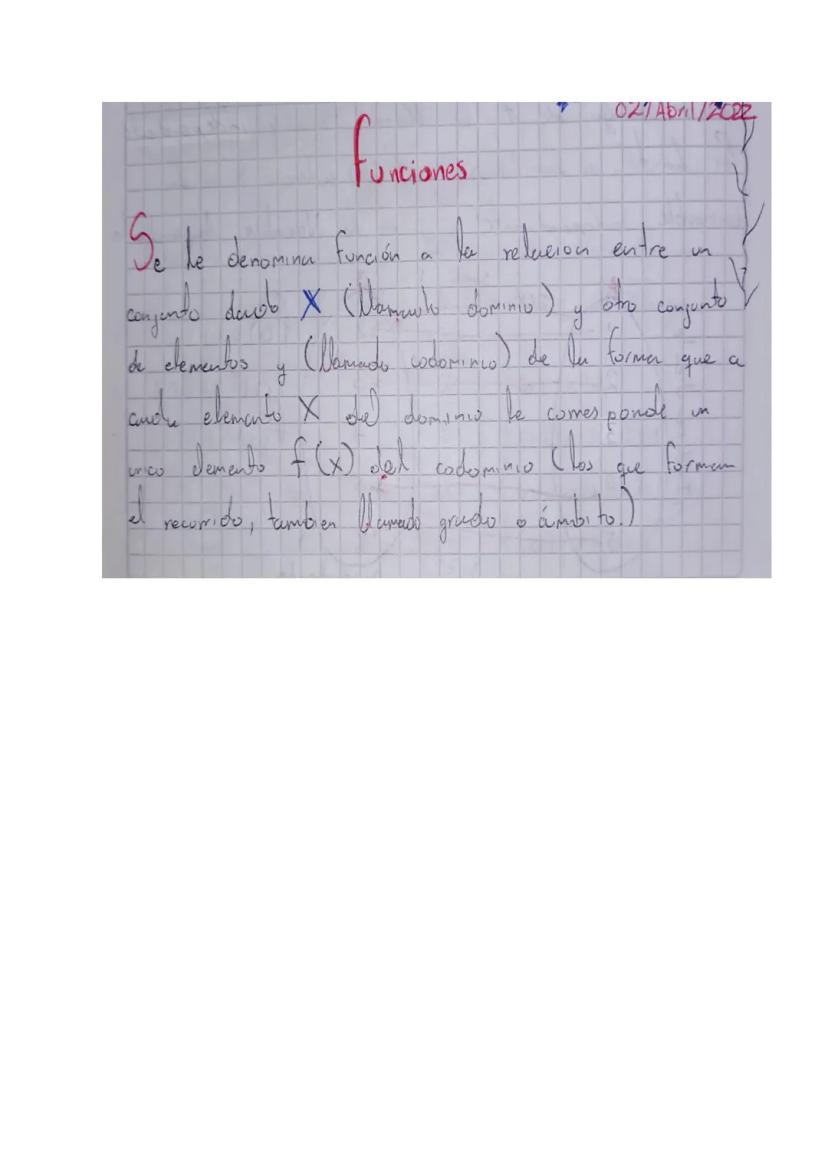 02/Abril/2022
Funciones
Se le denomina función a la relacion entre un
conjunto dado X (llamado dominio) y otro conjunto
de elementos y (llamado codominio) de la forma que a
cada elemento X del dominio le corresponde un
unico elemento f(x) del codominio (los que forman
el recorrido, tambien llamado grado o ámbito.)